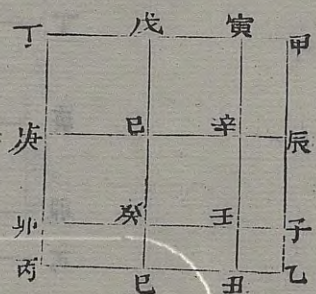 丁 戊 寅 甲
庚 己 辛 辰
卯 癸 壬 子
丙 巳 丑 乙